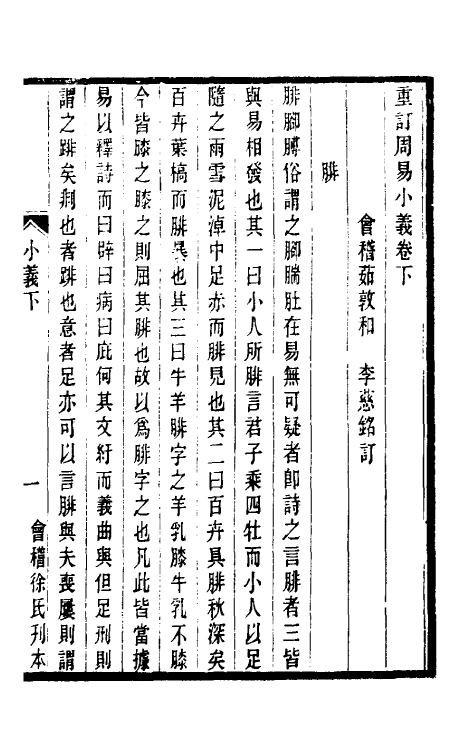 重訂周易小義卷下
會稽茹敦和　李慈銘訂
腓
腓腳膊俗謂之腳腨肚在易無可疑者卽詩之言腓者三皆
與易相發也其一曰小人所腓言君子乘四牡而小人以足
隨之雨雪泥淖中足赤而腓見也其二曰百卉具腓秋深矣
百卉葉槁而腓㬥也其三曰牛羊腓字之羊乳膝牛乳不膝
今皆膝之膝之則屈其腓也故以爲腓字之也凡此皆當據
易以釋詩而曰辟曰病曰庇何其文紆而義曲與但足刑則
謂之跸矣剕也者跸也意者足亦可以言腓與夫喪屨則謂
小義下
一
會稽徐氏刊本